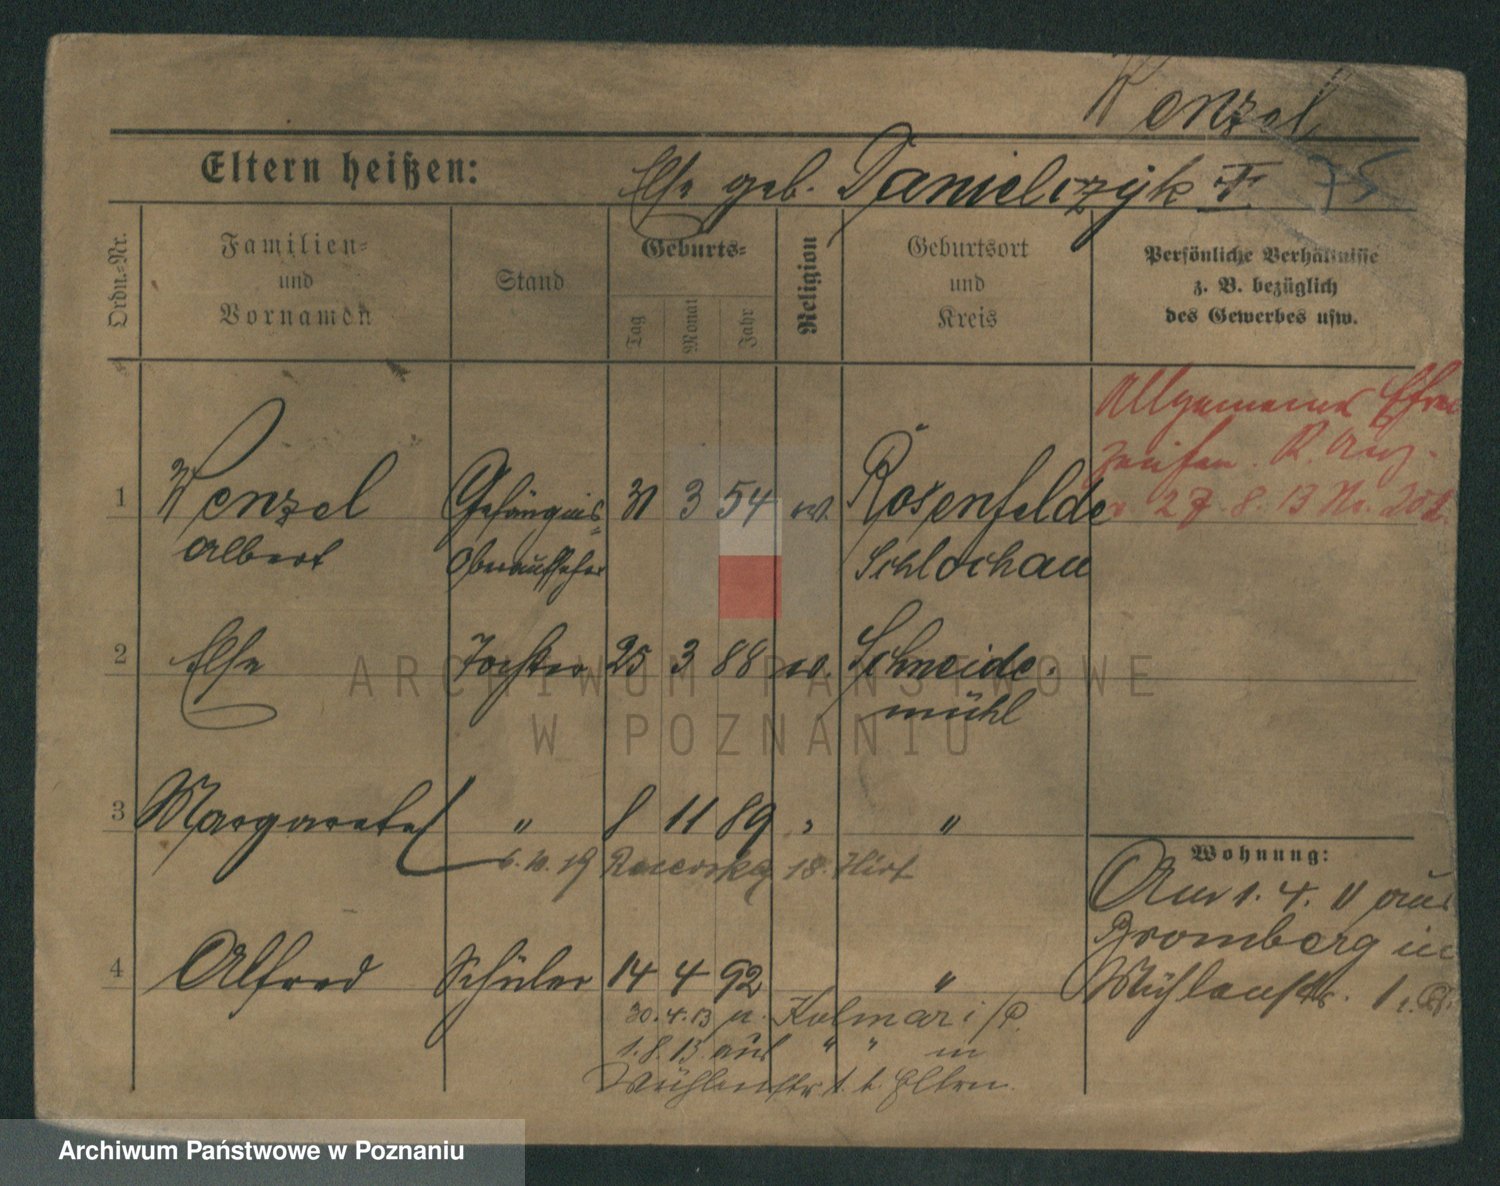 Wenzel
Eltern heißen: Else geb. Danielczyk
Ordn.=Nr.
Familien=
und
Vornamen
Stand
Geburts=
Tag
Monat
Jahr
Religion
Geburtsort
und
Kreis
Persönliche Verhältnisse
z. B. bezüglich
des Gewerbes usw.
Allgemeines
27. 8. 13 No. 202.
1 Wenzel Gefängnis= 31 3 54 ev. Rosenfelde
Albert Oberaufseher Schlochau
2 Else Tochter 25 3 88 ev. Schneide-
mühl
3 Margarete " 8 11 89 " "
18. Hirt
4 Alfred Schüler 14 4 92 "
30.4.13 n. Kolmar i/P.
1.8.13 aus " " in
Mühlenstr. 1. b. Eltern.
Wohnung:
Am 1. 4. 11 aus
Bromberg in
Mühlenstr. 1
ARCHIWUM PAŃSTWOWE
W POZNANIU
Archiwum Państwowe w Poznaniu